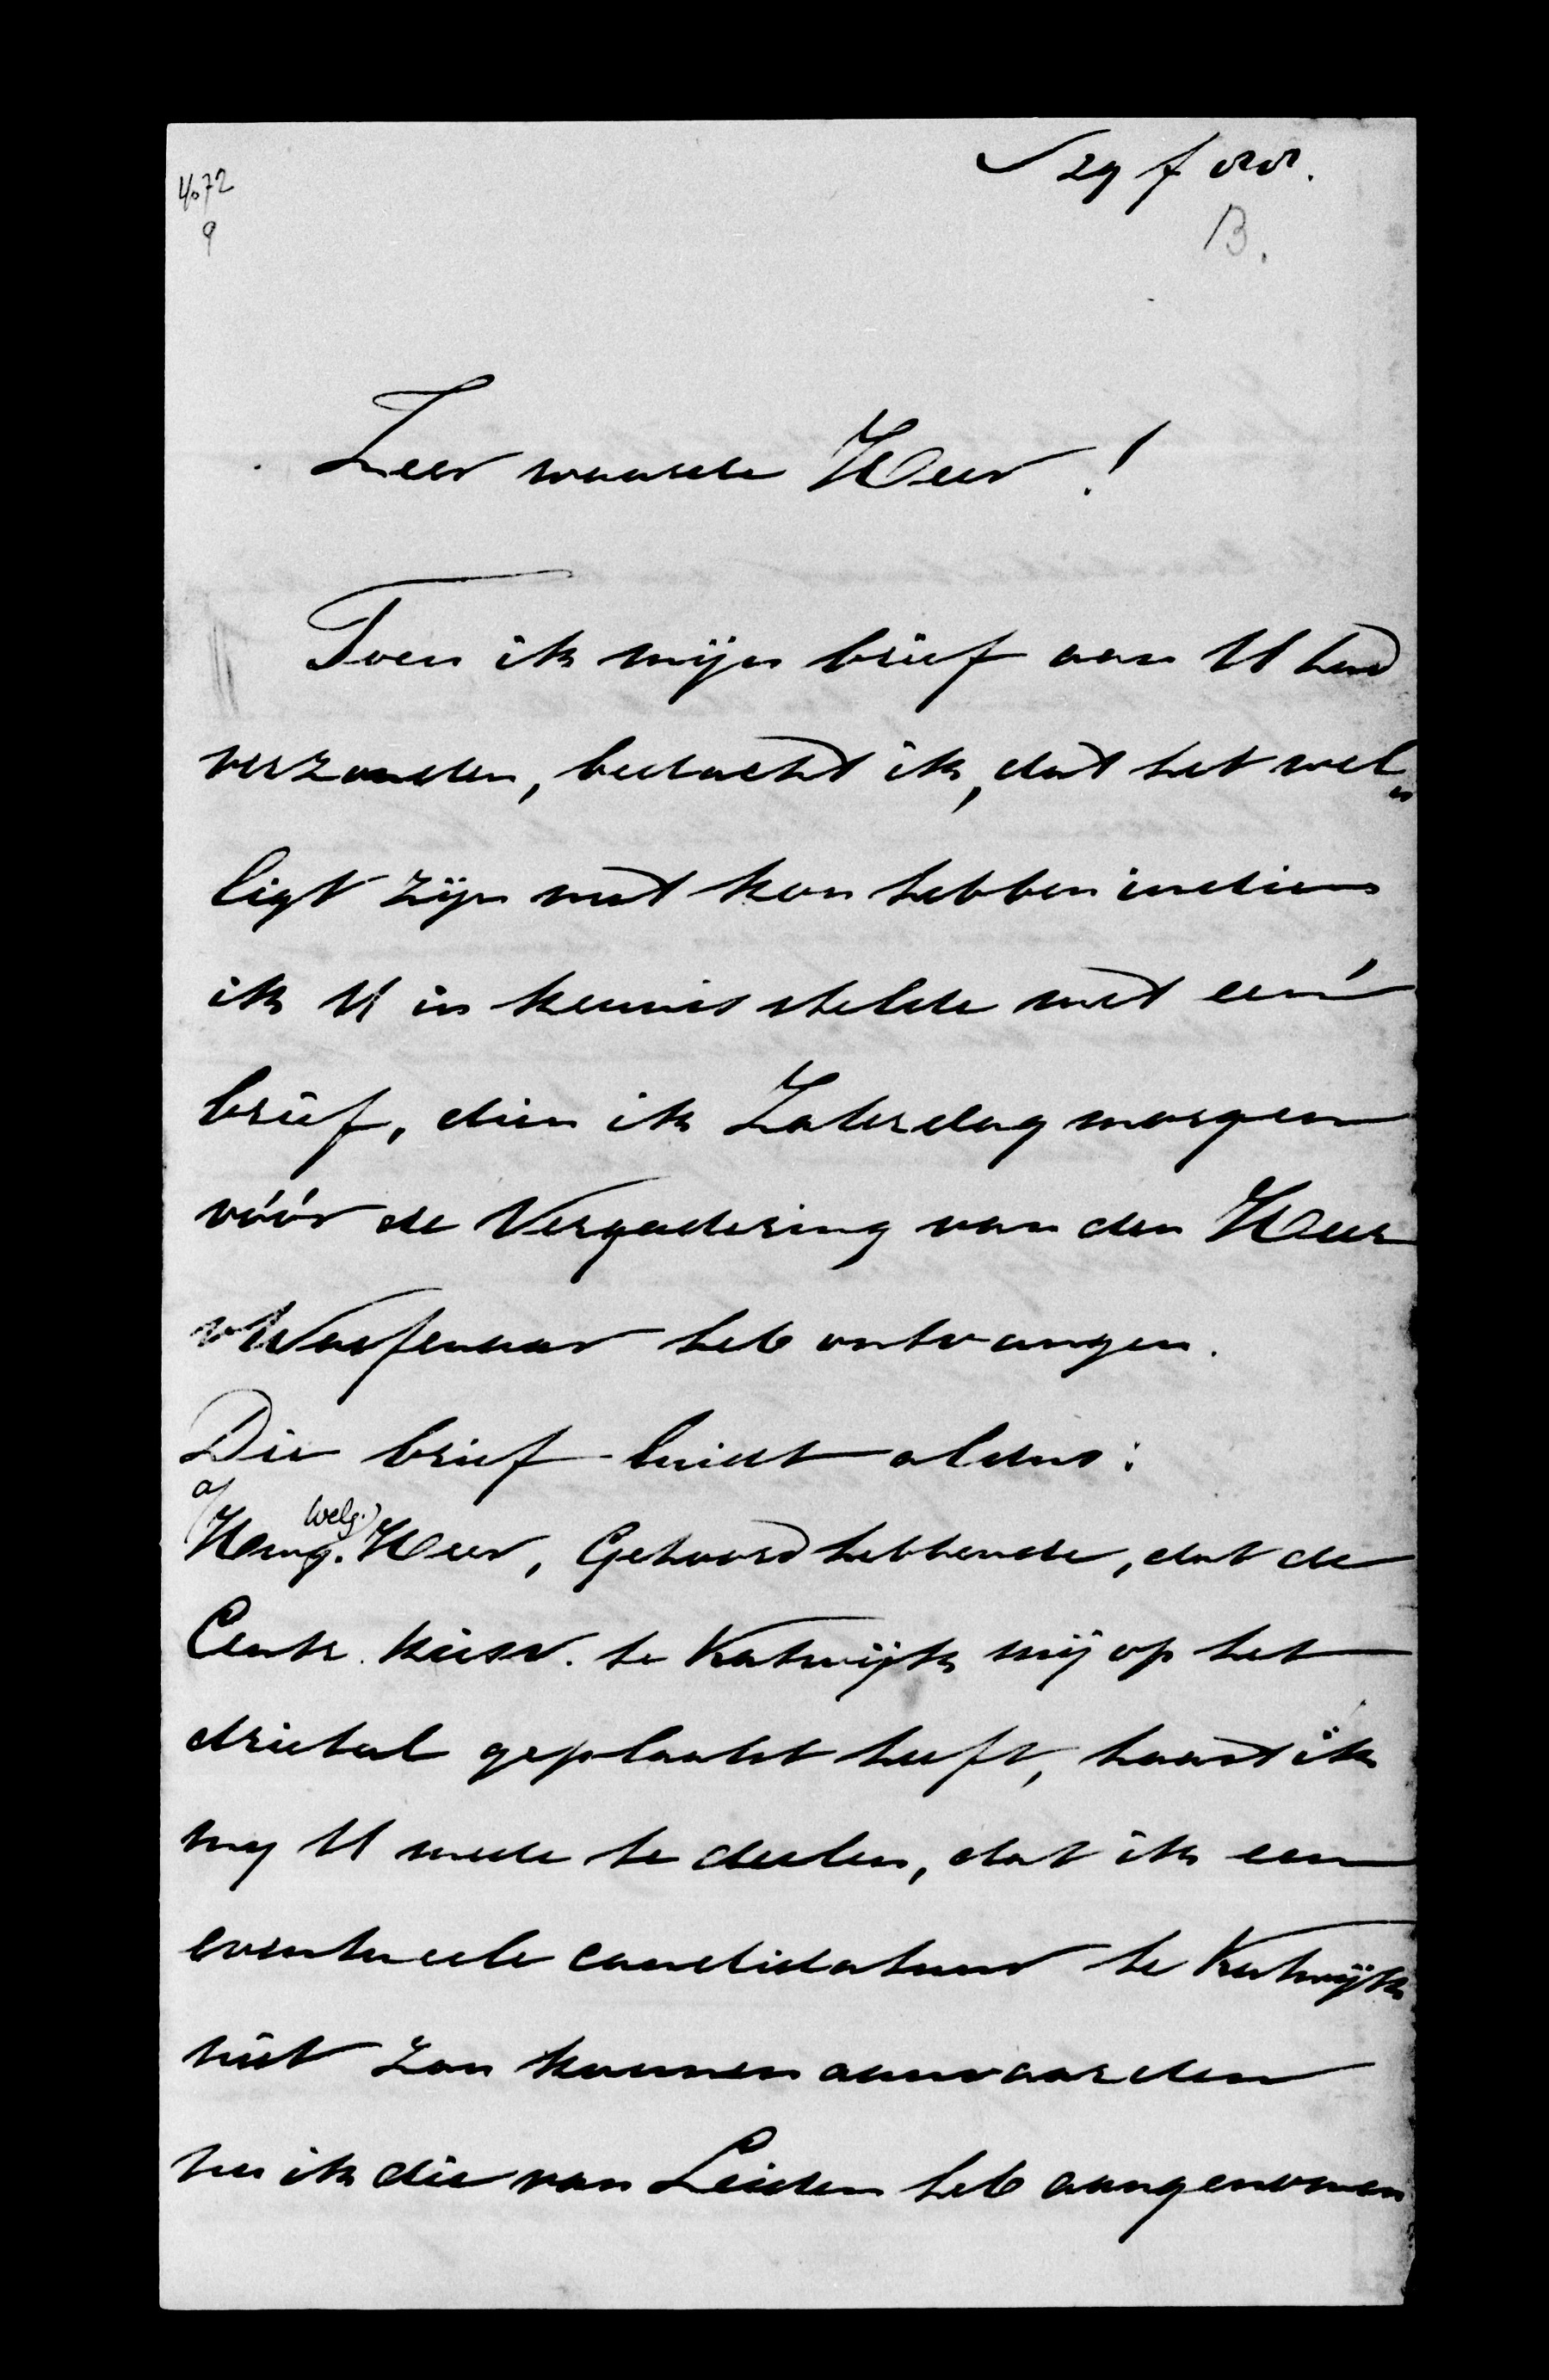 4072
9
29 f 88.
B.
Zeer waarde Heer!
Toen ik mijn brief aan U had
verzonden, bedacht ik, dat het wel„
ligt zijn nut kon hebben indien
ik U in kennis stelde met een'
brief, dien ik Zaterdag morgen
vóór de Vergadering van den Heer
v Wassenaar heb ontvangen.
Die brief luidt aldus:
a/
Hoog. Welg. Heer, Gehoord hebbende, dat de
Centr. Kiesv. te Katwijk mij op het
drietal geplaatst heeft, haast ik
my U mede te deelen, dat ik een
eventueele candidatuur te Katwijk
niet zou kunnen aanvaarden
nu ik die van Leiden heb aangenomen